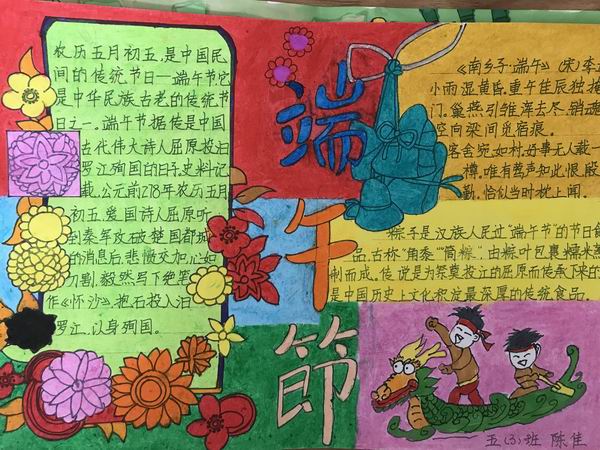 农历五月初五,是中国民
间的传统节日—端午节它
是中华民族古老的传统节
日之一。端午节据传是中国
古代伟大诗人屈原投汨
罗江殉国的日子。史料记
载,公元前278年农历五月
初五,爱国诗人屈原听
到秦军攻破楚国都城
的消息后,悲愤交加,心如
刀割,毅然写下绝笔
作《怀沙》,抱石投入汨
罗江,以身殉国。
端
午
節
《南乡子·端午》(宋)李
小雨湿黄昏。重午佳辰独掩
门。巢燕引雏浑去尽,销魂
空向梁间觅宿痕。
客舍宛如村。好事无人载一
樽。唯有莺声知此恨,殷
勤。恰似当时枕上闻。
粽子是汉族人民过"端午节"的节日食
品,古称"角黍""筒粽",由粽叶包裹糯米蒸
制而成,传说是为祭奠投江的屈原而传承下来的
是中国历史上文化积淀最深厚的传统食品。
五(3)班 陈佳